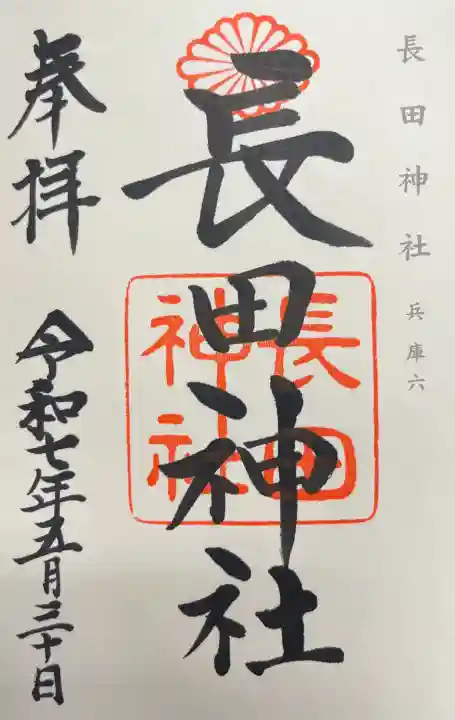 長田神社 兵庫六
長田神社
長田
神社
奉拝
令和七年五月三十日